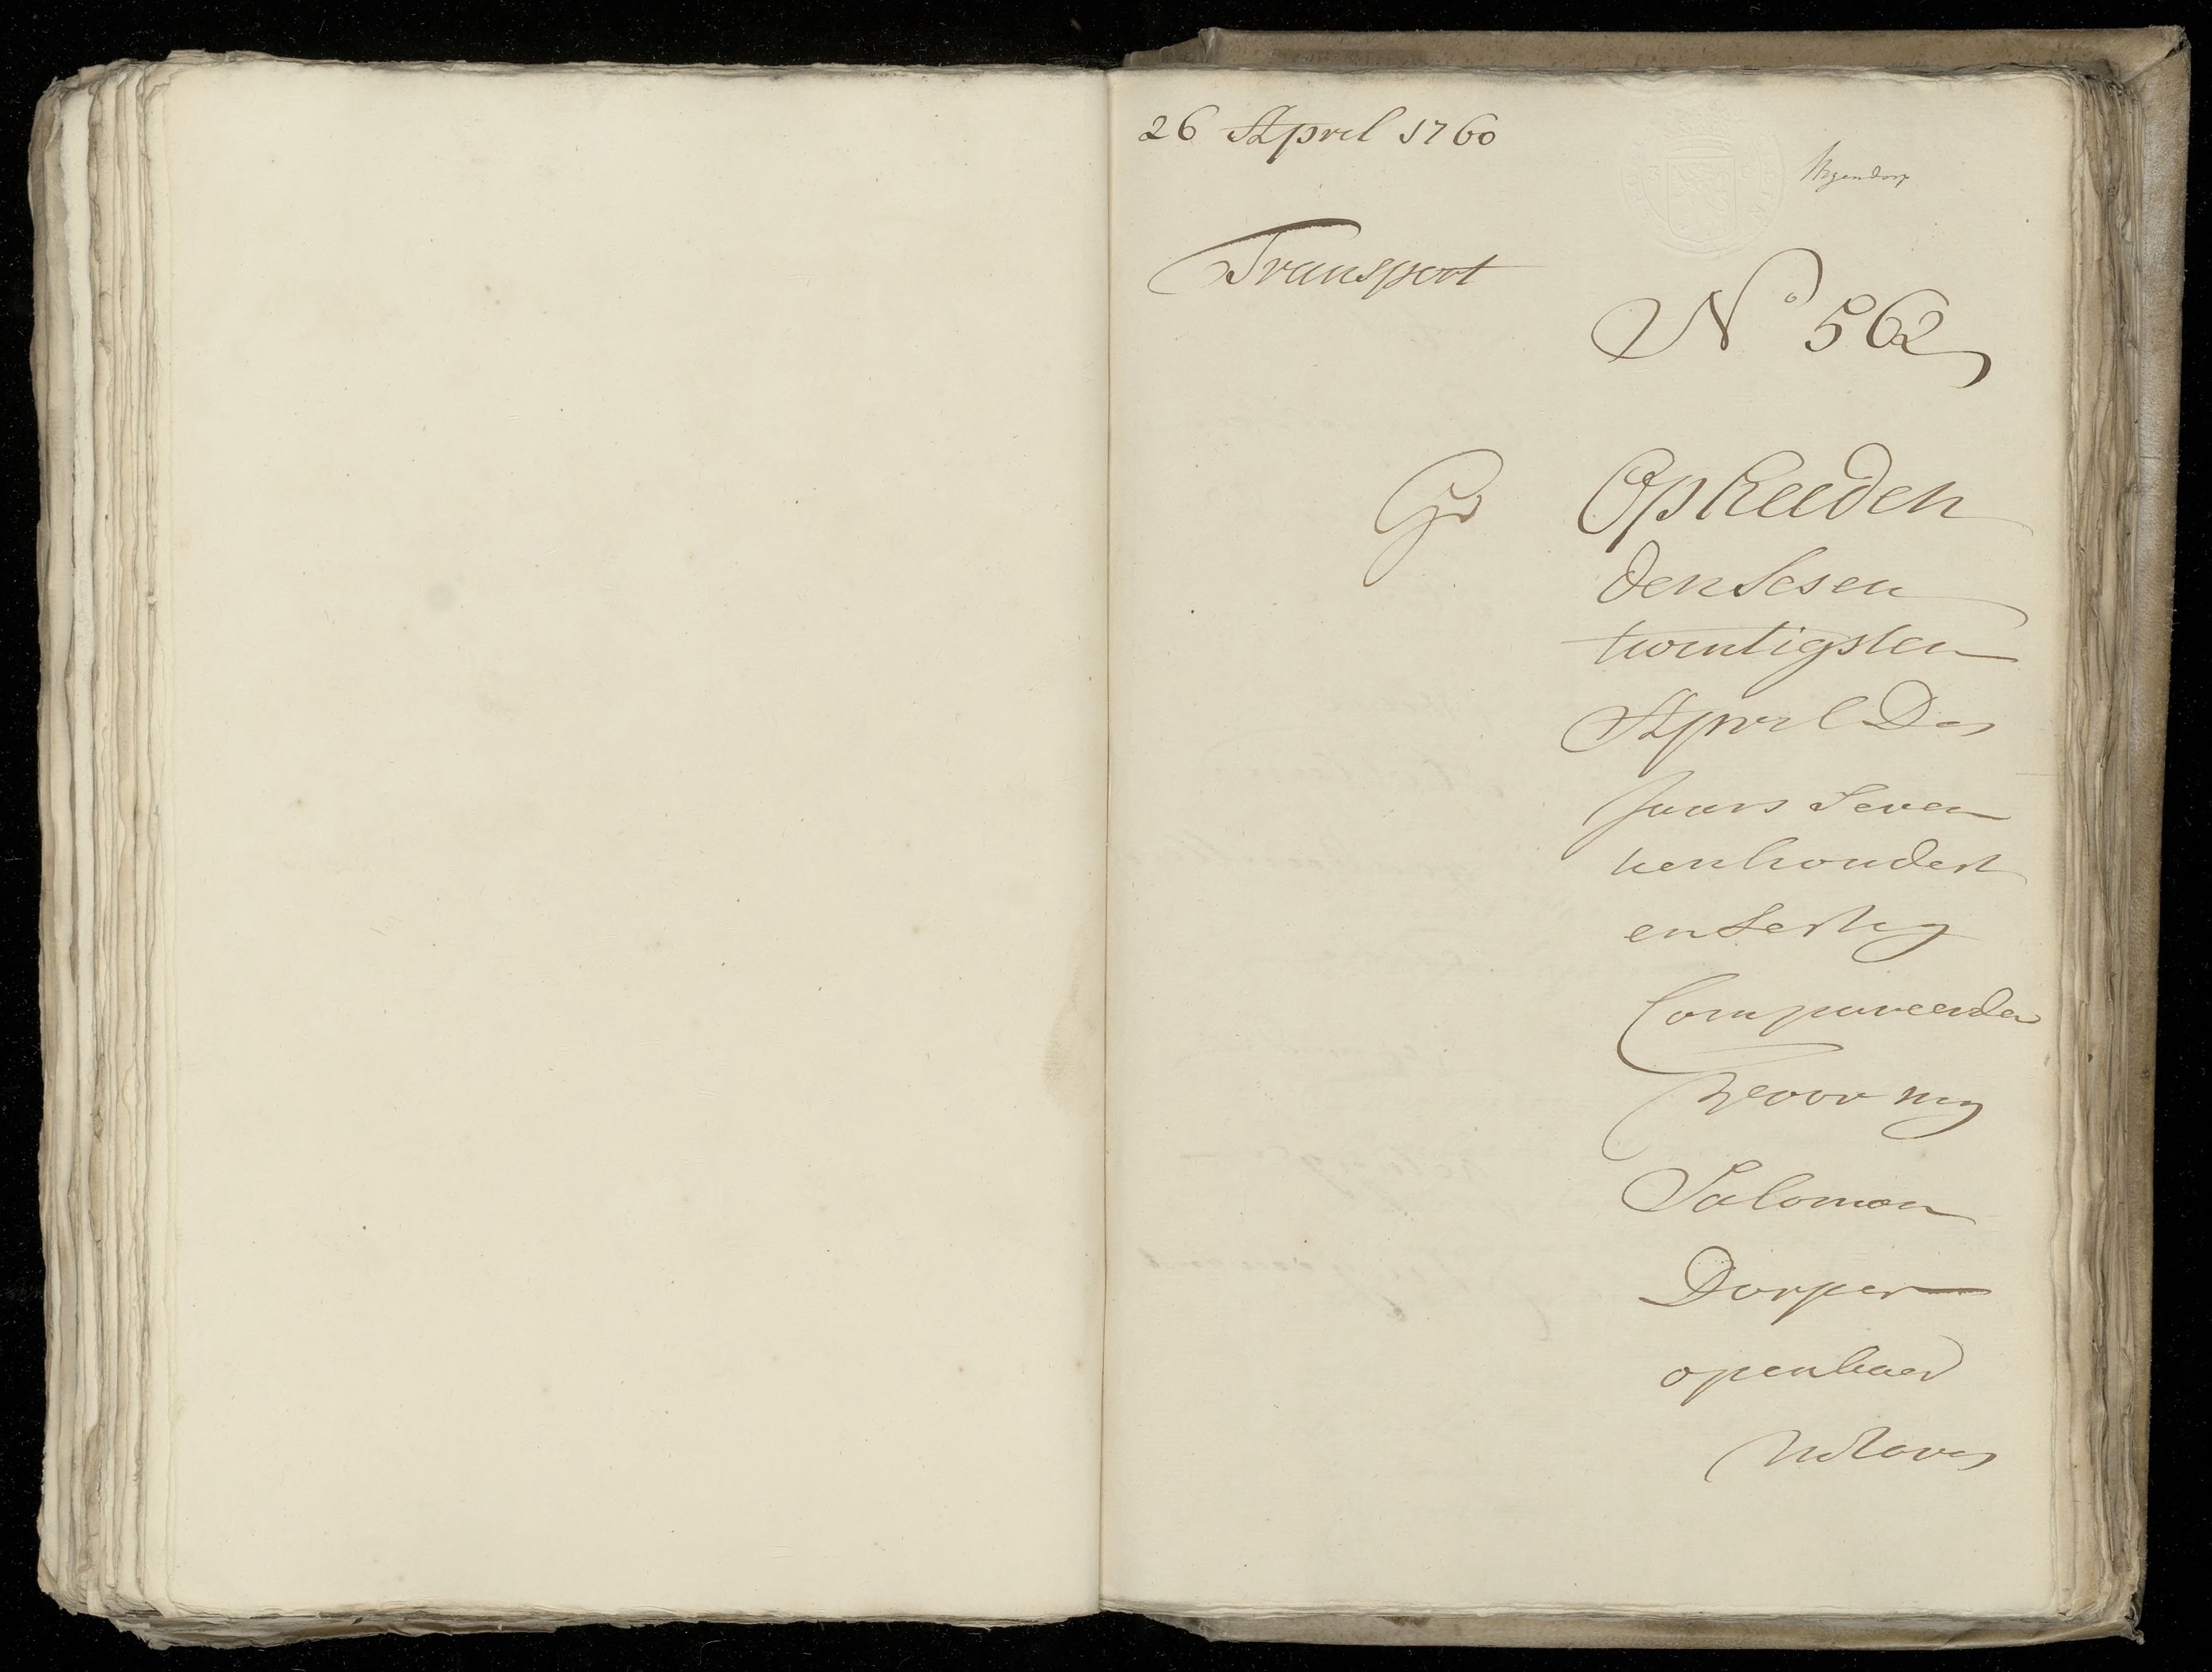 26 April 1760
Transport
No 562
Gr Op heeden
den Sesen
twintigsten
April Des
Jaars Seven
tienhondert
en Sestig
Compareerde
voor mij
Salomon
Dorper
openbaer
notaris